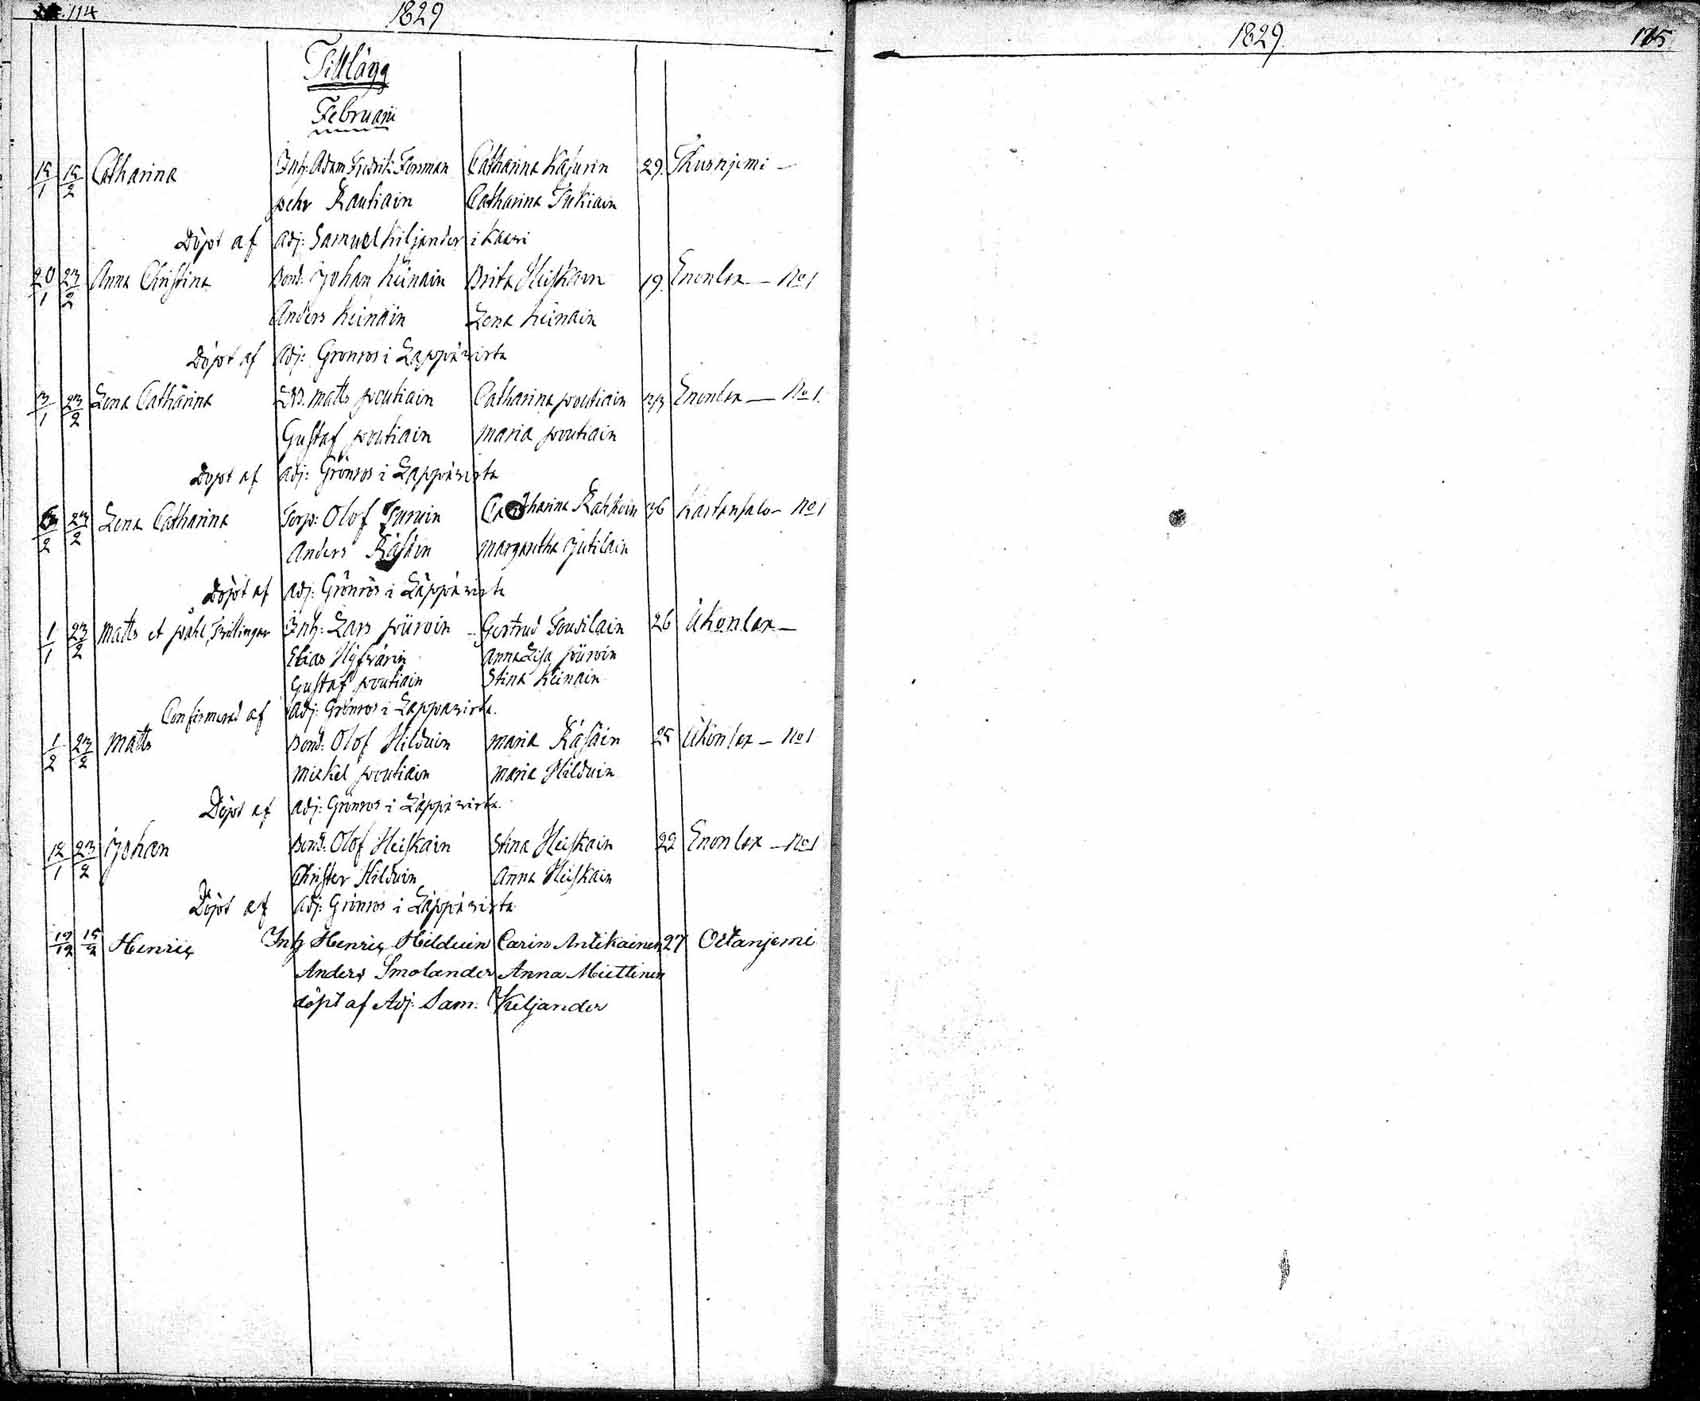 114 1829
Tillägg
Februarii
15/1 15/2 Catharina Inh: Adam Fredrik Forsman Catharina Kajurin 29.
Pehr Rautiain Catharina Tukiain
Döpt af Adj: Samuel Kiljander i Kaavi
20/1 23/2 Anna Christina Bond: Johan Keinain Brita Heiskain 19. Enonlax — No 1
Anders Keinain Lena Keinain
Döpt af Adj: Grönros i Lappavirta
3/1 23/2 Lena Catharina Matts Poutiain Catharina Poutiain 33 Enonlax — No 1.
Gustaf Poutiain Maria Poutiain
Döpt af Adj: Grönros i Lappavirta
23/2 Lena Catharina Torp: Olof Turuin Catharina 36 Kartansalo No 1
Anders Räsäin Margaretha Jutilain
Döpt af Adj: Grönros i Lappavirta
1/1 23/2 Matts et Påhl, Tvillingar Inh: Lars Gertrud Tousilain 26 Ukonlax —
Elias Hyfvärin Anna Lisa
Gustaf Poutiain Stina Keinain
Confirmerad af Adj: Grönros i Lappavirta.
1/2 23/2 Matts Bond: Olof Hilduin Maria Räsäin 25 Ukonlax — No 1
Mickel Poutiain Maria Hilduin
Döpt af Adj: Grönros i Lappavirta.
12/1 23/2 Johan Bond: Olof Heiskain Stina Heiskain 22 Enonlax — No 1
Christer Hilduin Anna Heiskain
Döpt af Adj: Grönros i Lappavirta
19/12 15/2 Henric Inh Henric Hilduin Carin Antikainen 27 Oitanjemi
Anders Smolander Anna Miettinen
döpt af Adj. Sam. Kiljander
1829. 115